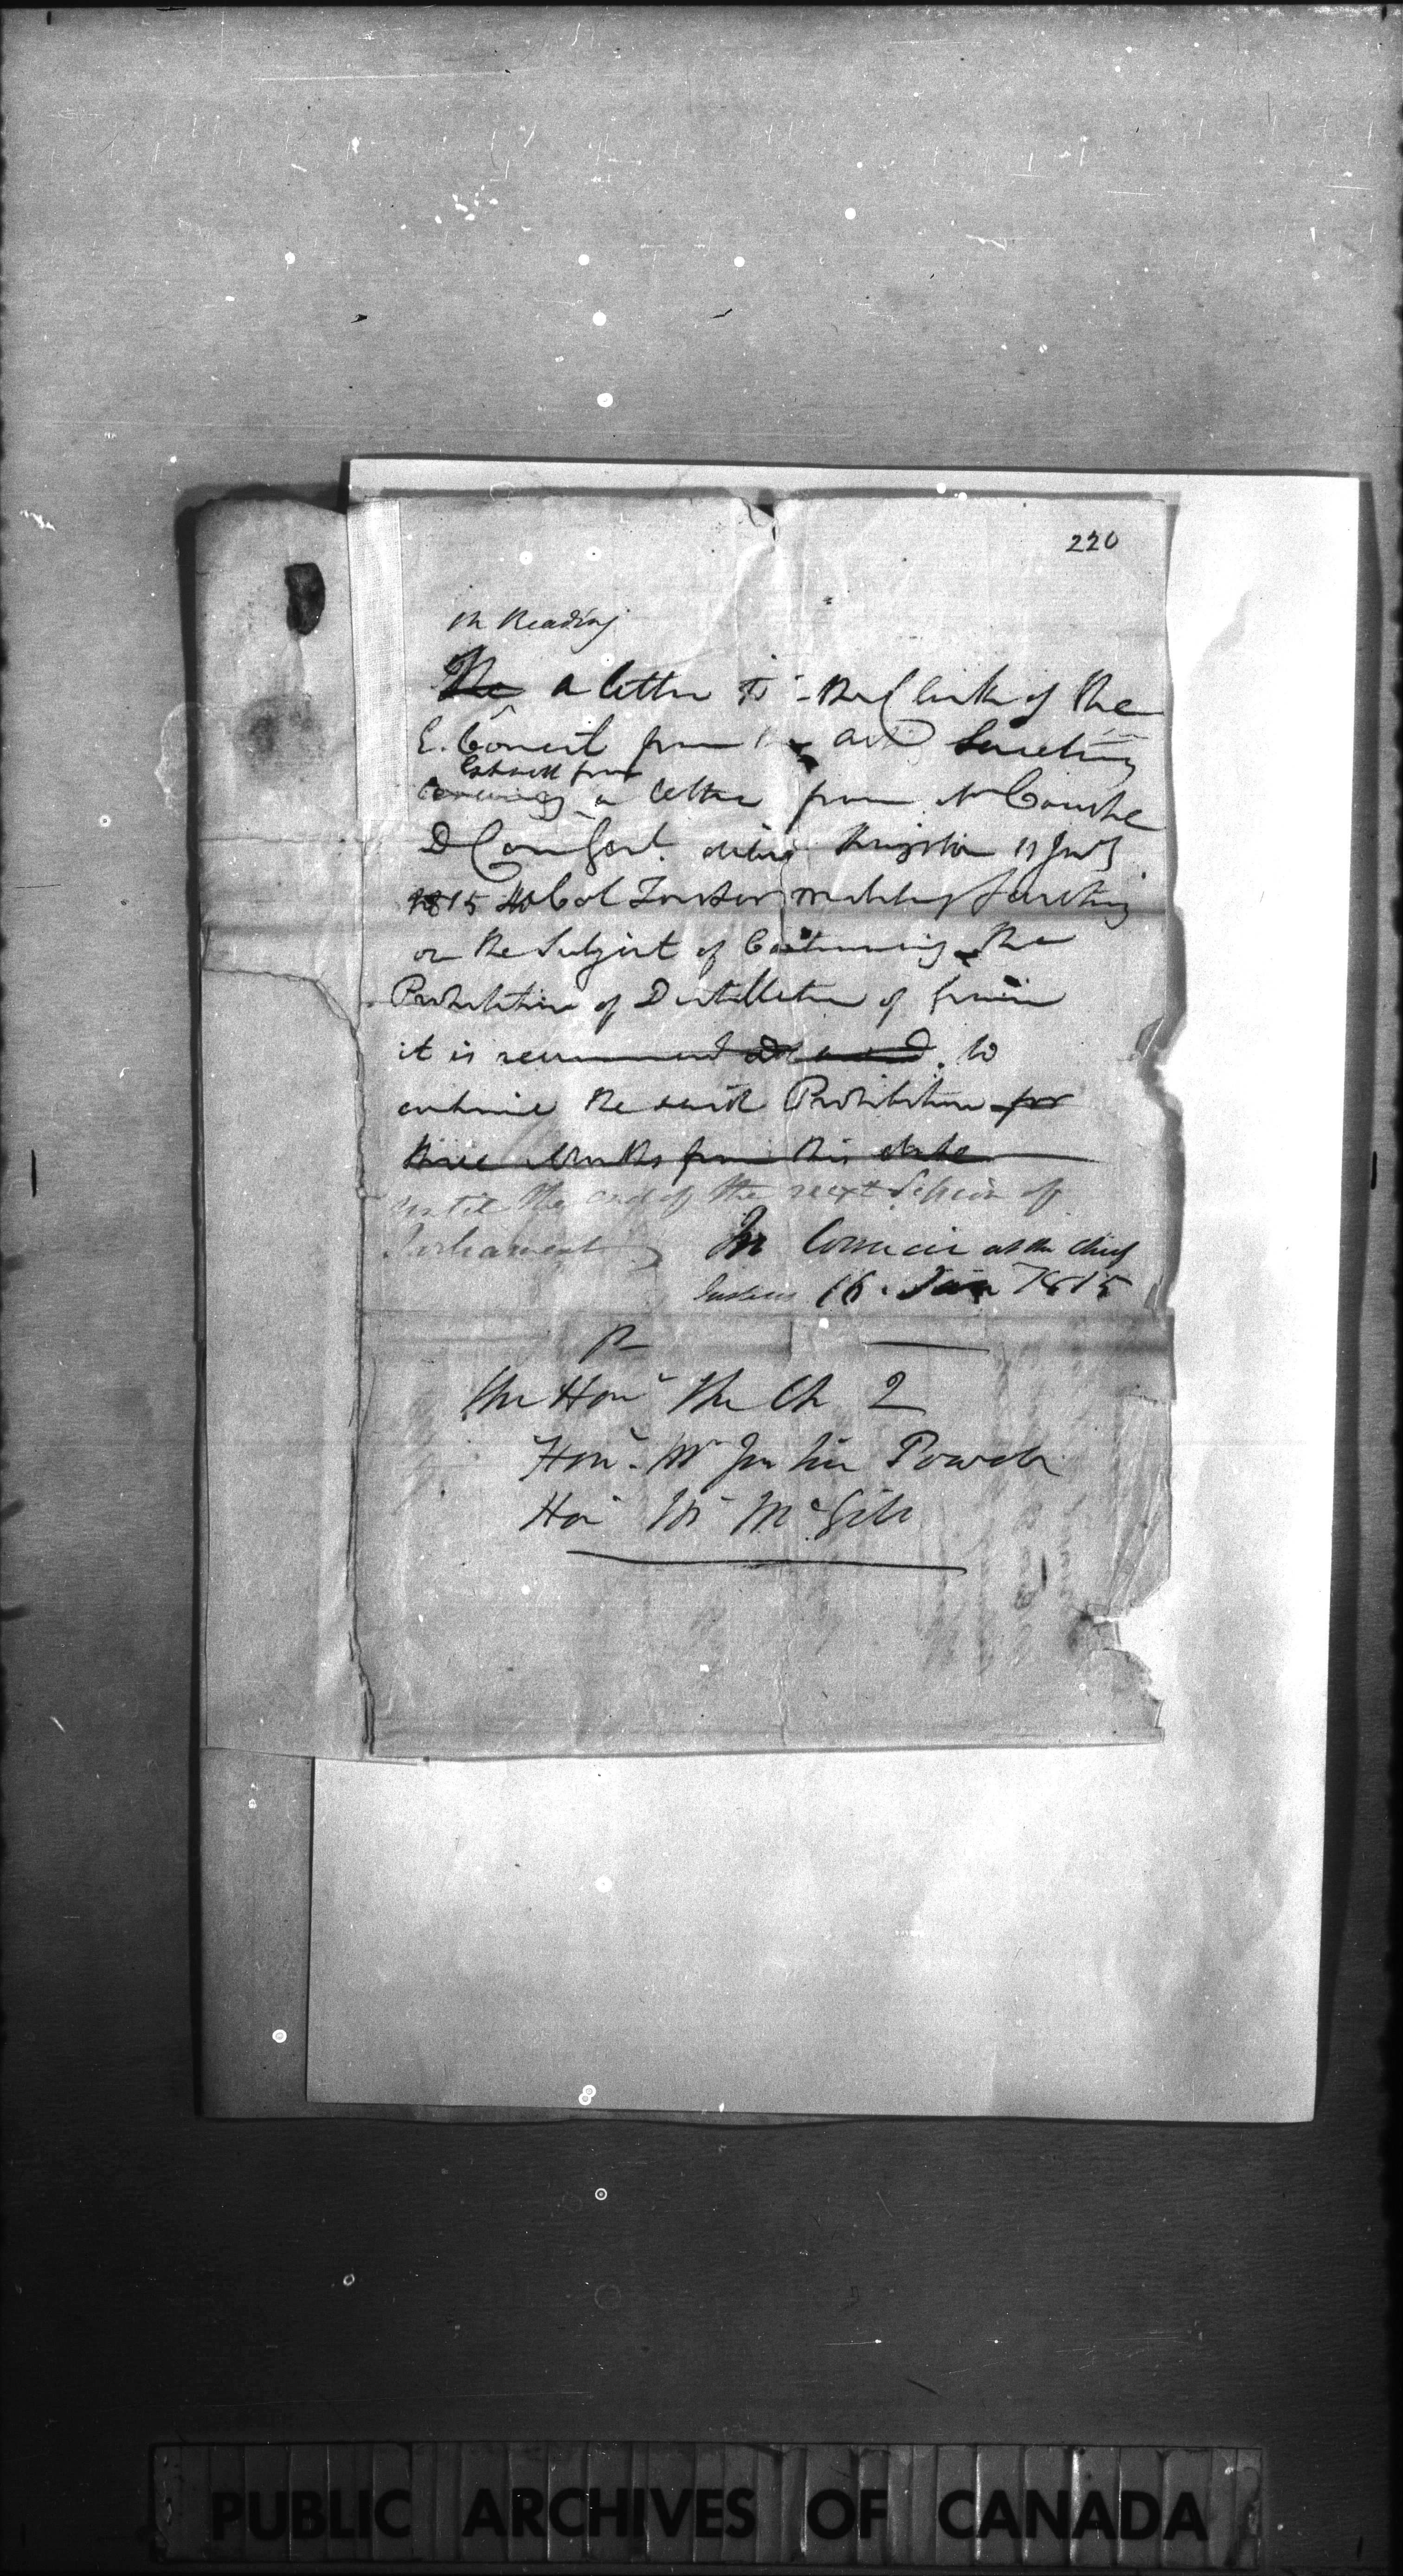 220
On Reading
The a letter to the Clerk of the
E. Council from the Actg Secretary
Extract from
a letter from Mr Couche
D Com Genl. dated Kingston 11 Jany
1815 to Col Foster Military Secretary
on the Subject of Continuing the
Prohibition of Distillation of Grain
it is recommend to
continue the said Prohibition for
three Months from this date
until the end of the next Session of
Parliament In Council at the Chief
Justices 16. Jan 1815
P
The Honl The Ch J
Honl. Mr Justice Powell
Hon Mr McGill
PUBLIC ARCHIVES OF CANADA